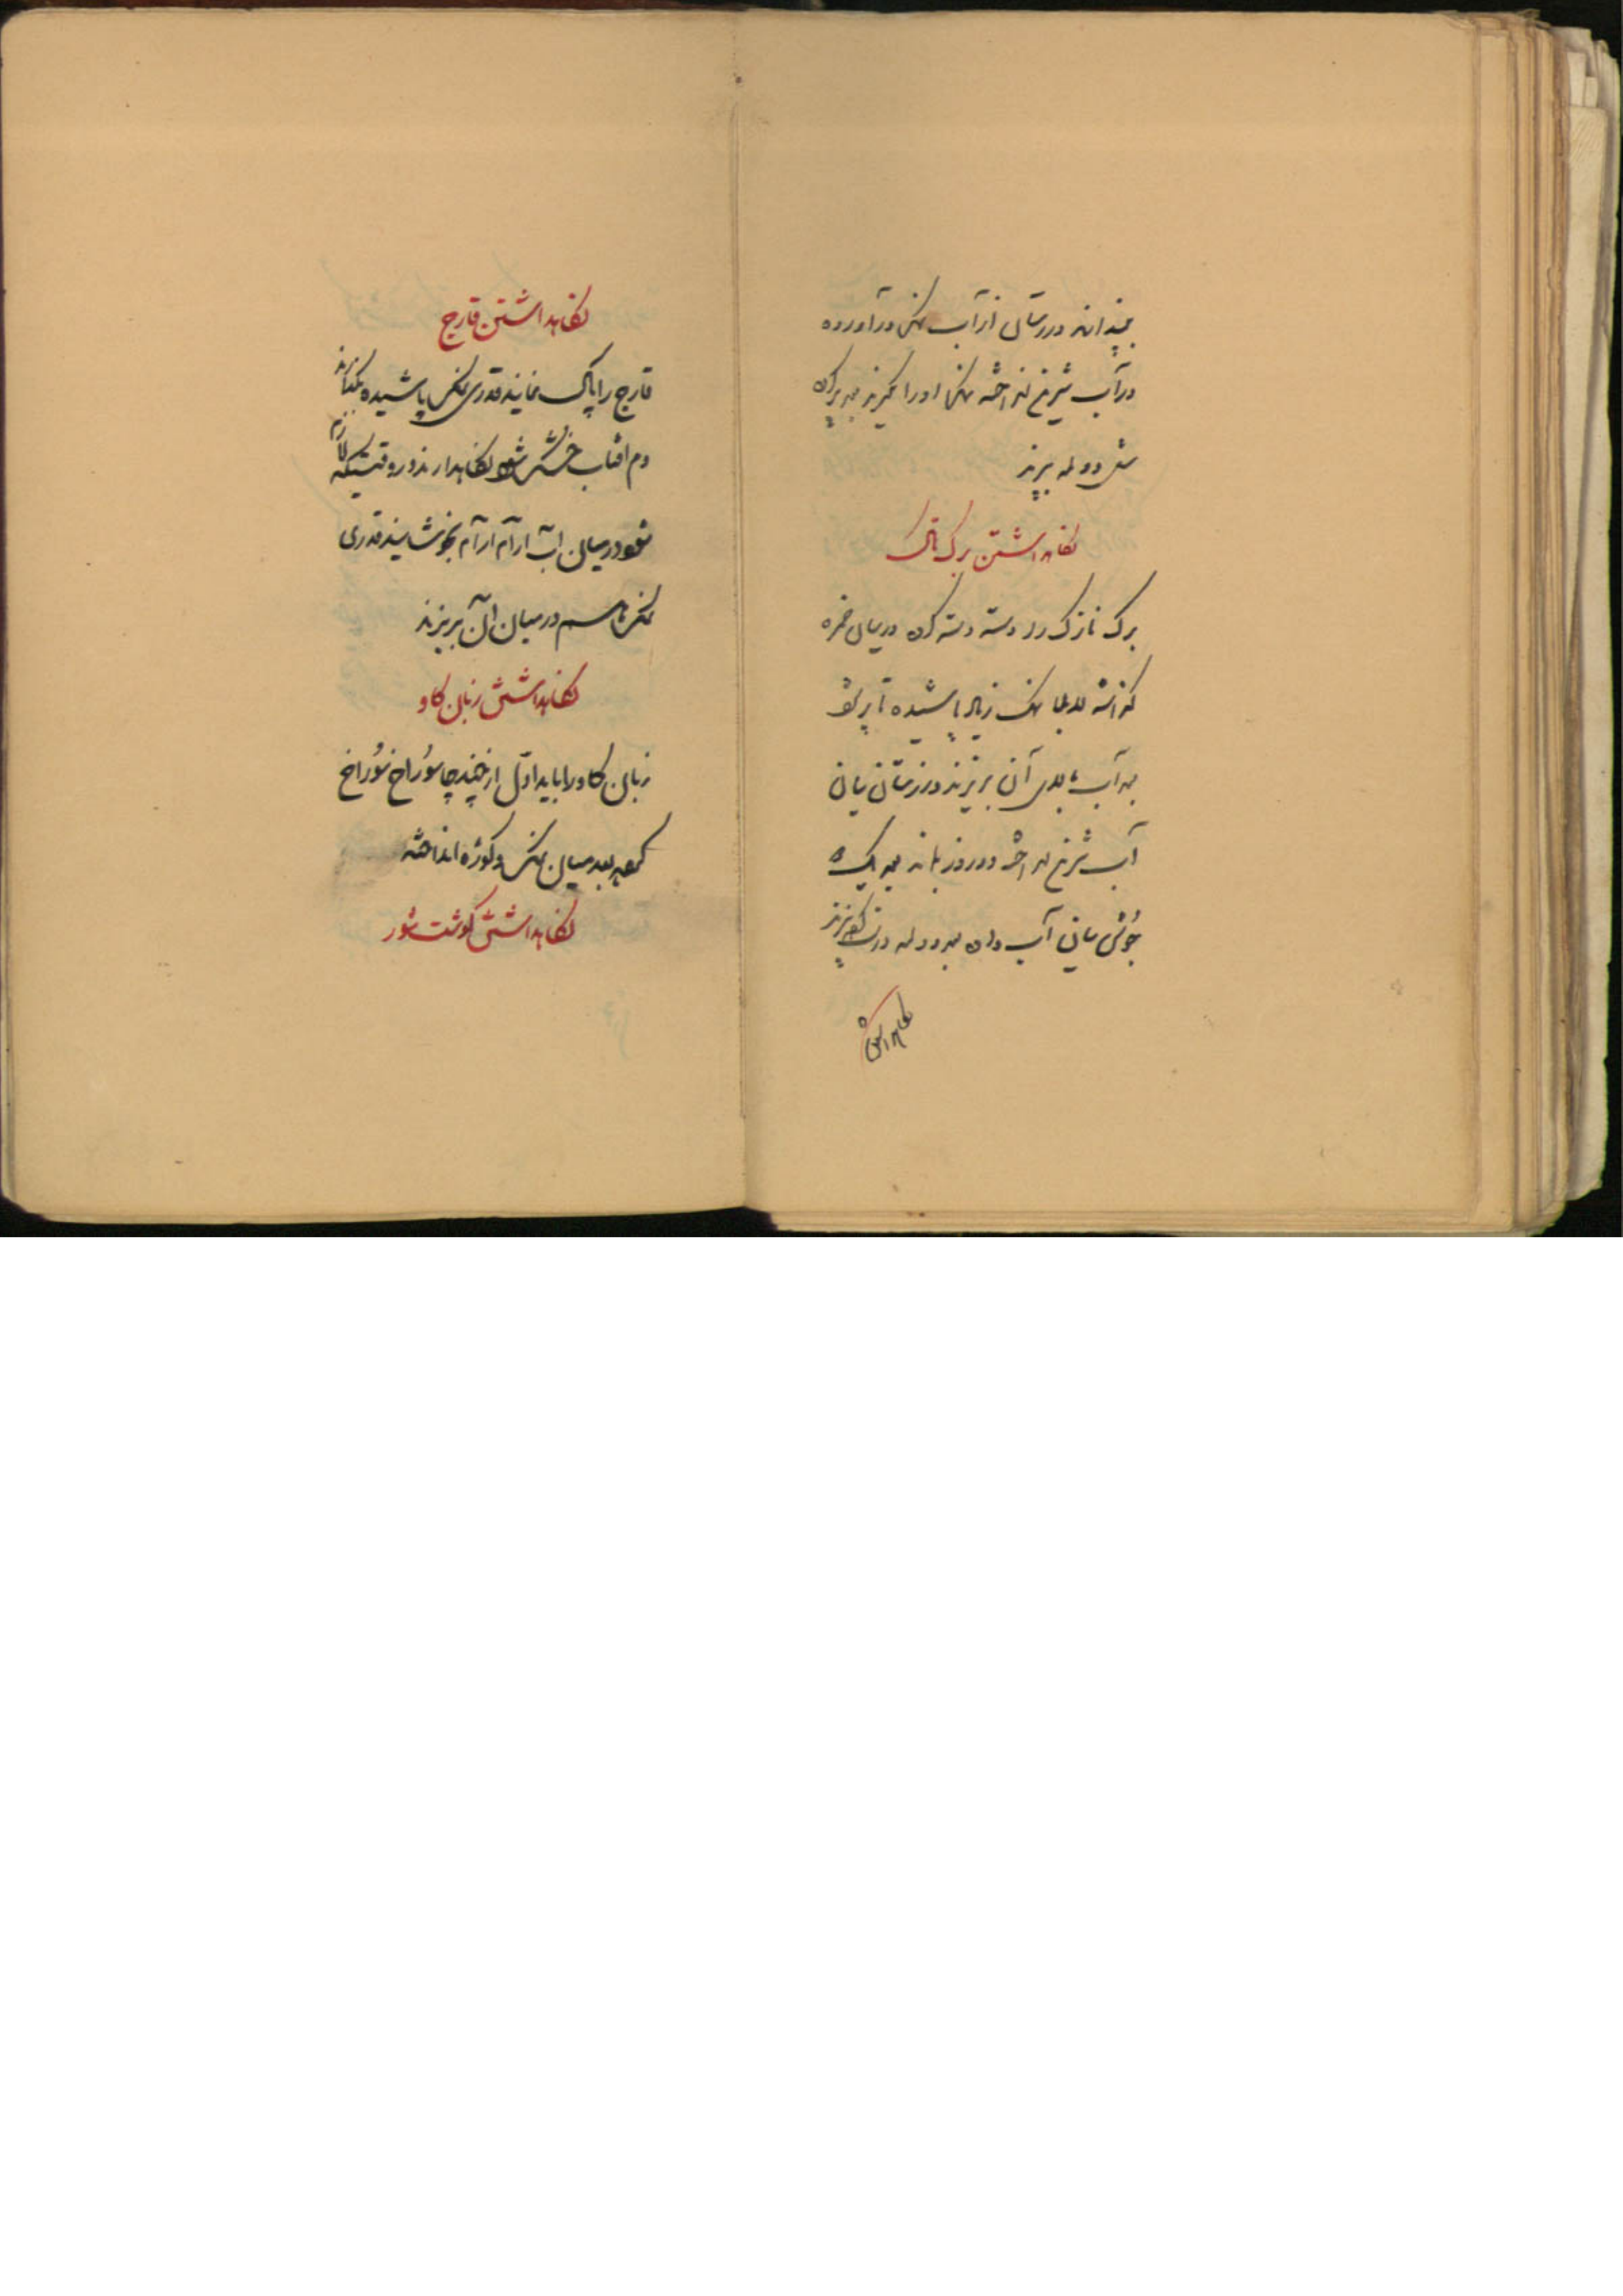 در زمستان از آب نمک درآورده
در آب شیرین انداخته نمک او را بگیرند بعد پر کرده
مثل دولمه بپزند
نگاهداشتن برگ تاک
برگ نازک را دسته دسته کرده در میان خمره
گذاشته لابلا نمک زیاد پاشیده تا پر شود
بعد آب بالای آن بریزند در زمستان میان
آب شیرین انداخته دو روز بماند بعد یک
جوش میان آب داده بعد دولمه درست کرده بپزند
نگاهداشتن
نگاهداشتن قارچ
قارچ را پاک نمایند قدری نمک پاشیده بگذارند
دم افتاب خشک شود نگاهدارند در وقتیکه لازم
شود در میان آب آرام آرام بجوشانند قدری
نمک هم در میان آن بریزند
نگاهداشتن زبان گاو
زبان گاو را باید اول از چند جا سوراخ سوراخ
کرده بعد میان نمک و کوزه انداخته
نگاهداشتن گوشت شور